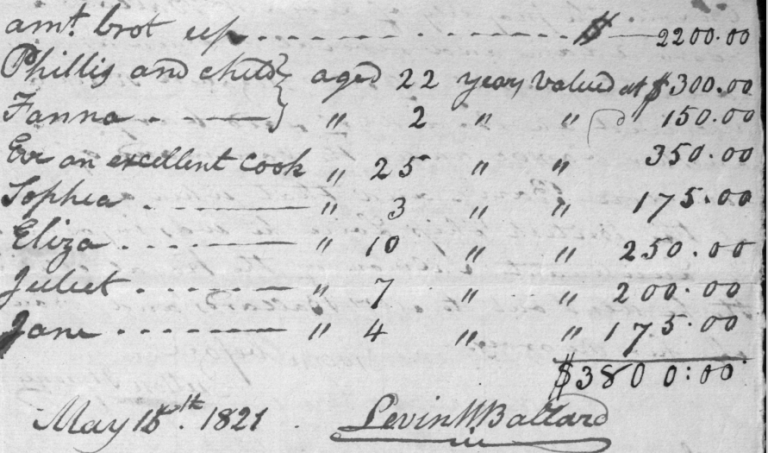 amt. brot up . . . . . . . . . . $ 2200.00
Phillis and child } aged 22 years valued at $300.00
Fanna . - — } " 2 " " " 150.00
Eve an excellent cook " 25 " " 350.00
Sophia . — " 3 " " 175.00
Eliza . . — " 10 " " 250.00
Juliet . . . — " 7 " " 200.00
Jane . . . . — " 4 " " 175.00
$3800:00
May 15th. 1821 . Levin W Ballard